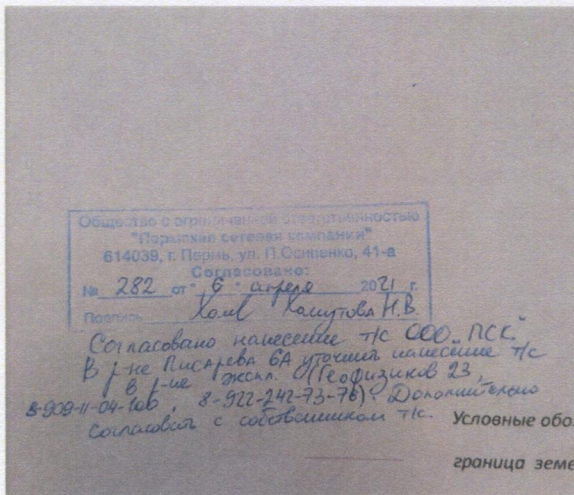 Общество с ограниченной ответственностью
"Пермская сетевая компания"
614039, г. Пермь, ул. П.Осипенко, 41-а
Согласовано:
№ 282 от "6" апреля 2021 г.
Подпись Хомутова Н.В.
Согласовано нанесение т/с ООО "ПСК"
В р-не Писарева 6А уточнить нанесение т/с
в р-не экспл. (Геофизиков 23,
8-922-242-73-76). Дополнительно
согласовать с собственником т/с.
Условные обо
граница земе